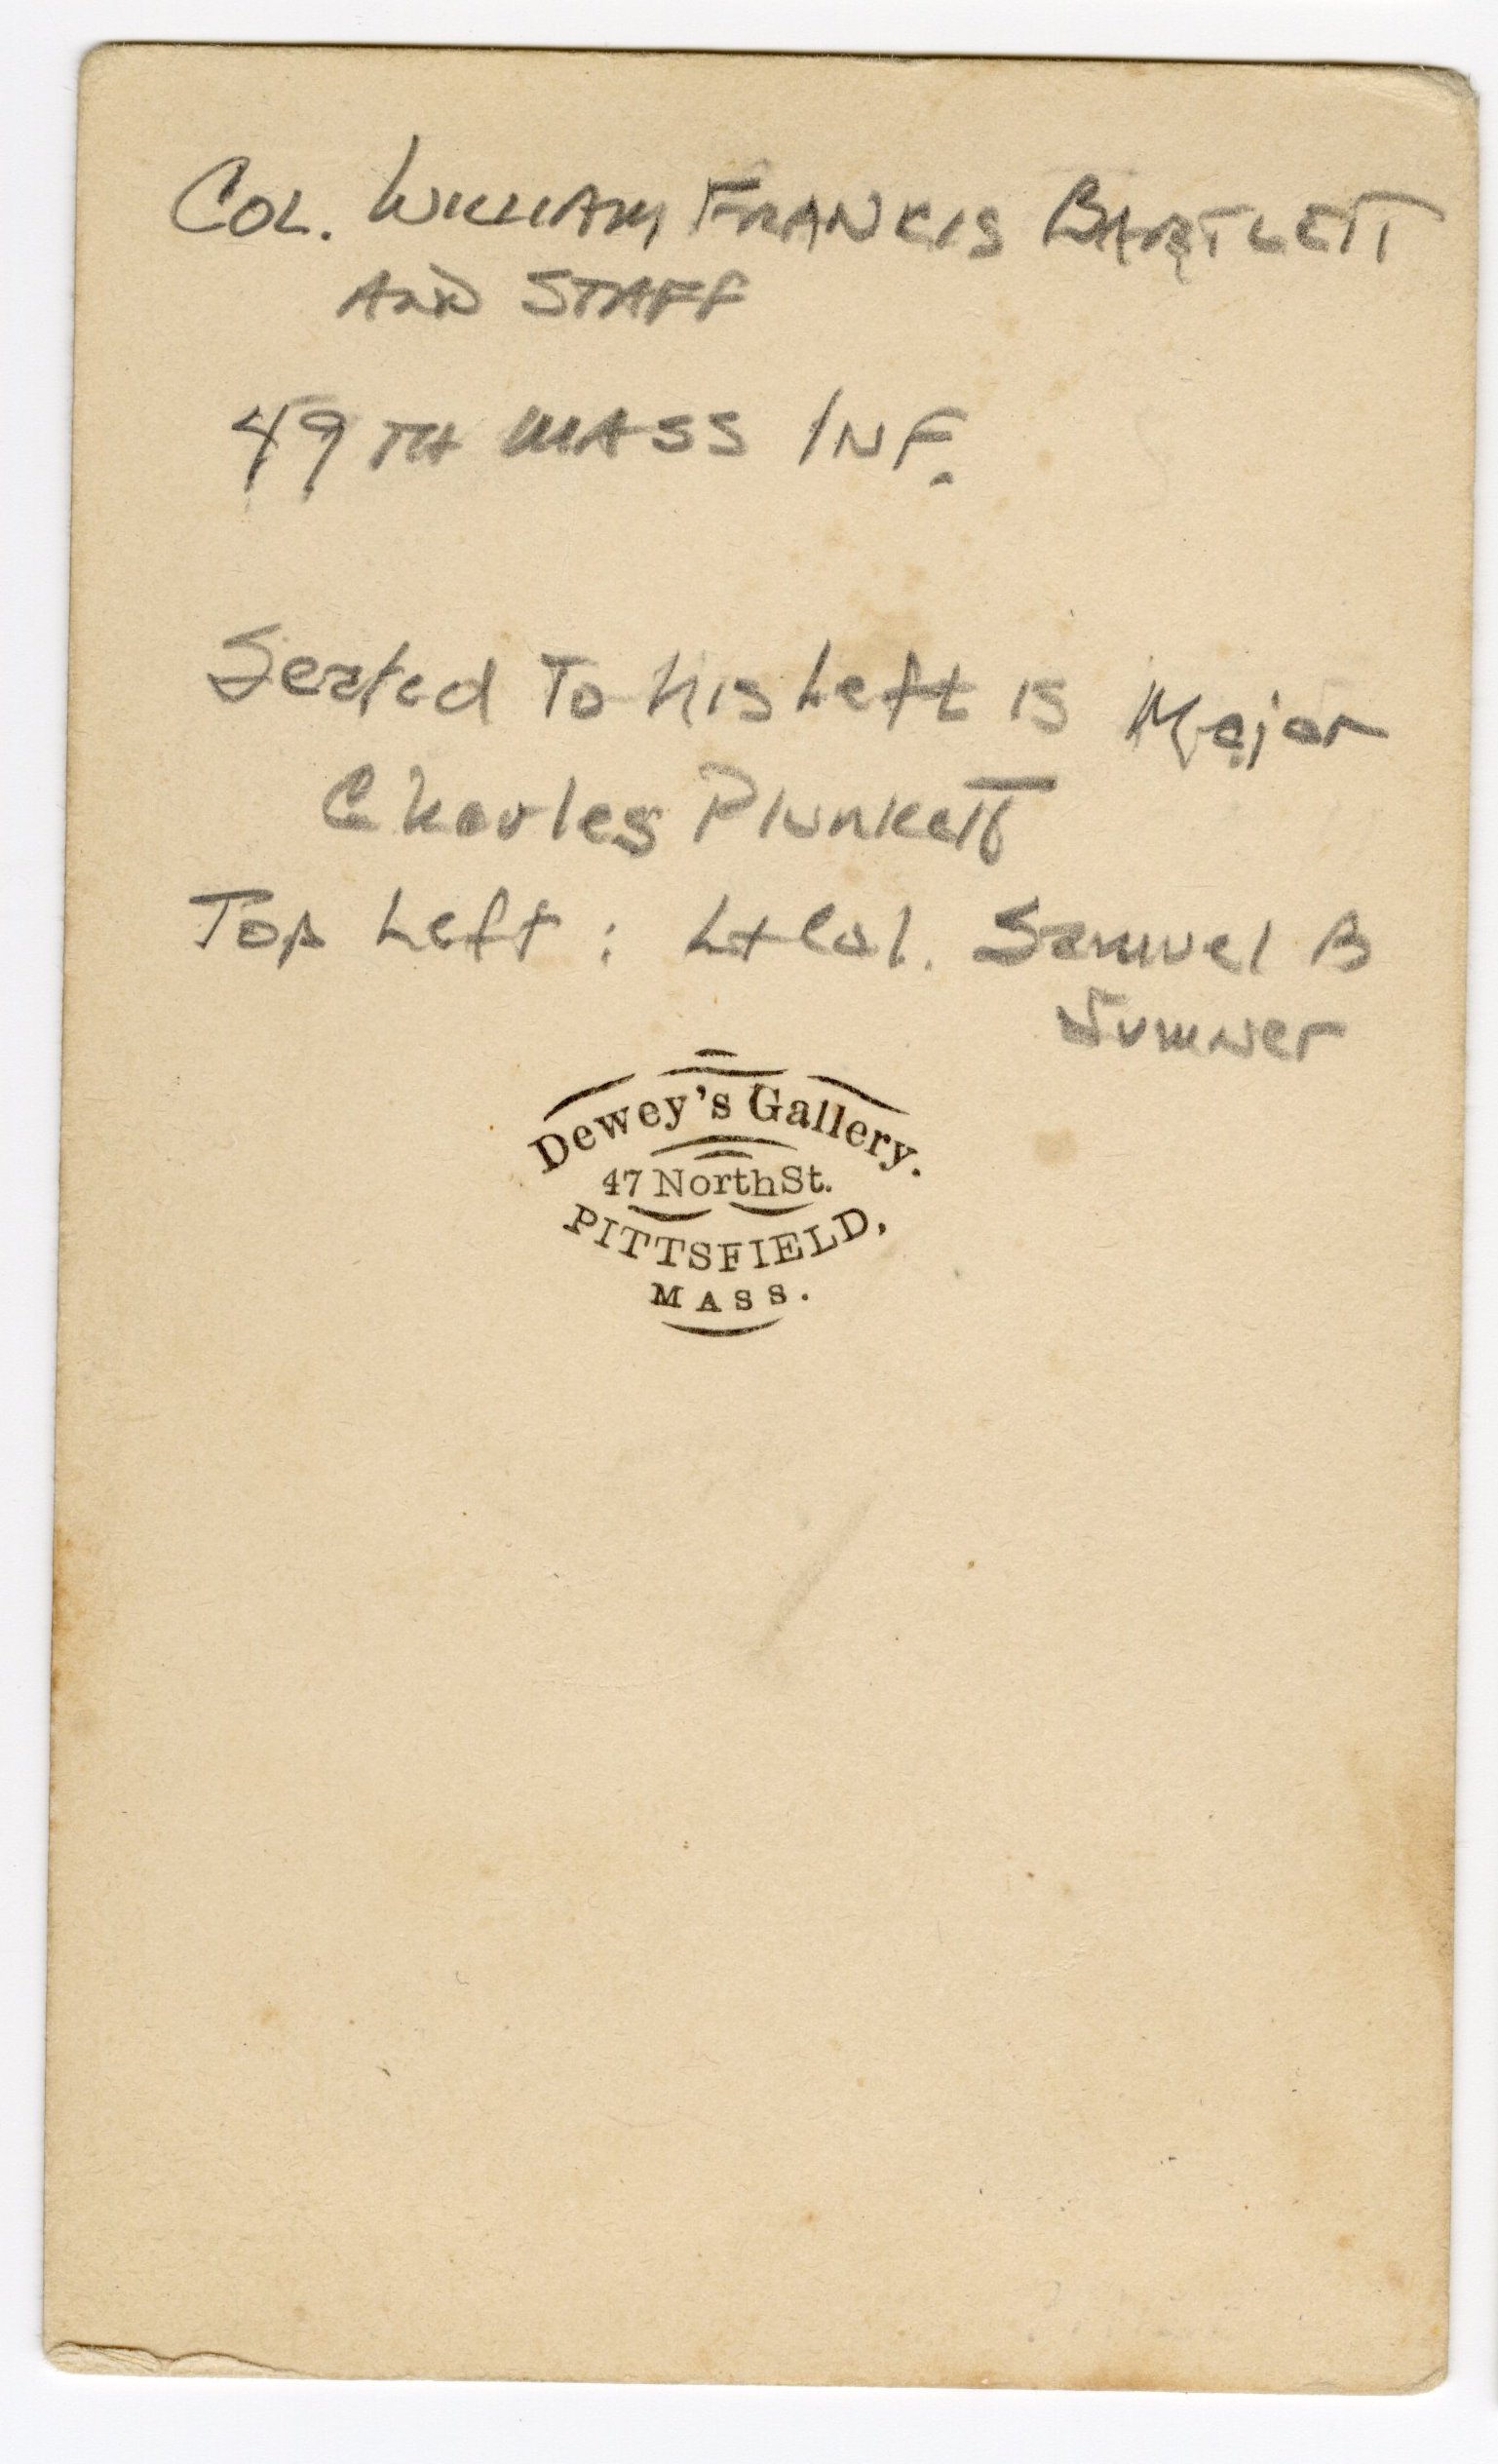 COL. WILLIAM FRANCIS BARTLETT
AND STAFF
49TH MASS INF.
Seated To his Left is Major
Charles Plunkett
Top Left : Lt Col. Samuel B
Sumner
Dewey's Gallery.
47 North St.
PITTSFIELD,
MASS.